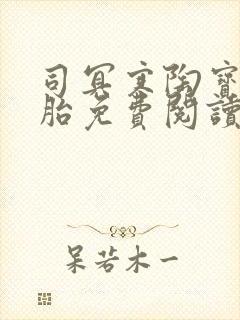 司冥寒陶寶
胎免費閱讀
呆若木一